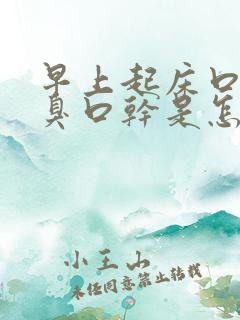 早上起床口
臭口幹是怎
小王山
未经同意禁止转载